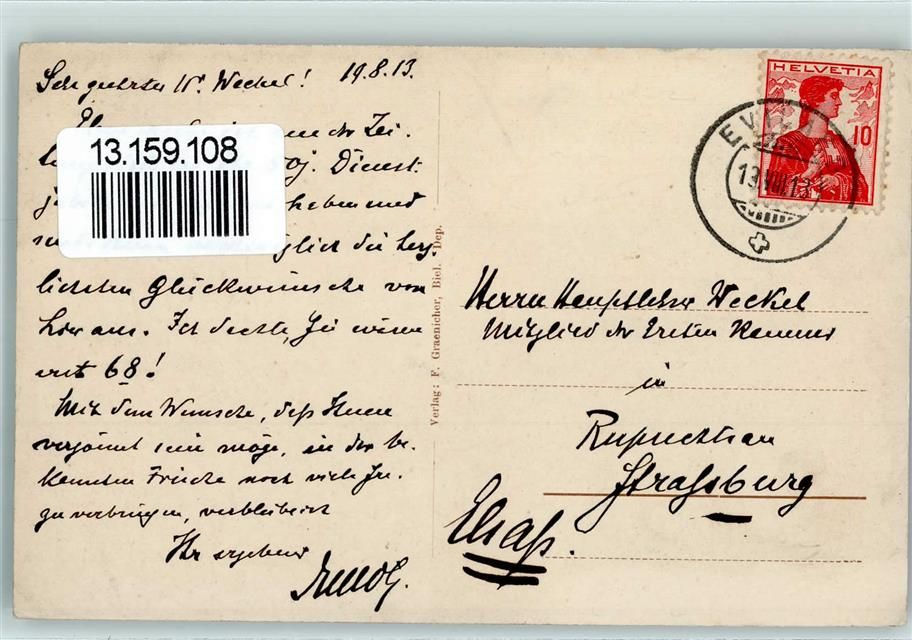 Sehr geehrter Hr. Weckel! 19.8.13.
in der Zei-
50j. Dienst-
haben und
die herz-
lichsten Glückwünsche von
hier aus. Ich dachte, Sie wären
erst 68!
Mit dem Wunsche, daß Ihnen
vergönnt sein möge, in der be-
kannten Frische noch viele Ju-
zu verbringen, verbleibt
Ihr ergebener
13.159.108
Verlag: F. Graenicher, Biel. Dep.
HELVETIA
10
EV
19.VIII.13
Herrn Hauptlehrer Weckel
Mitglied der Ersten Kammer
in
Ruprechtsau
Straßburg
Elsaß.